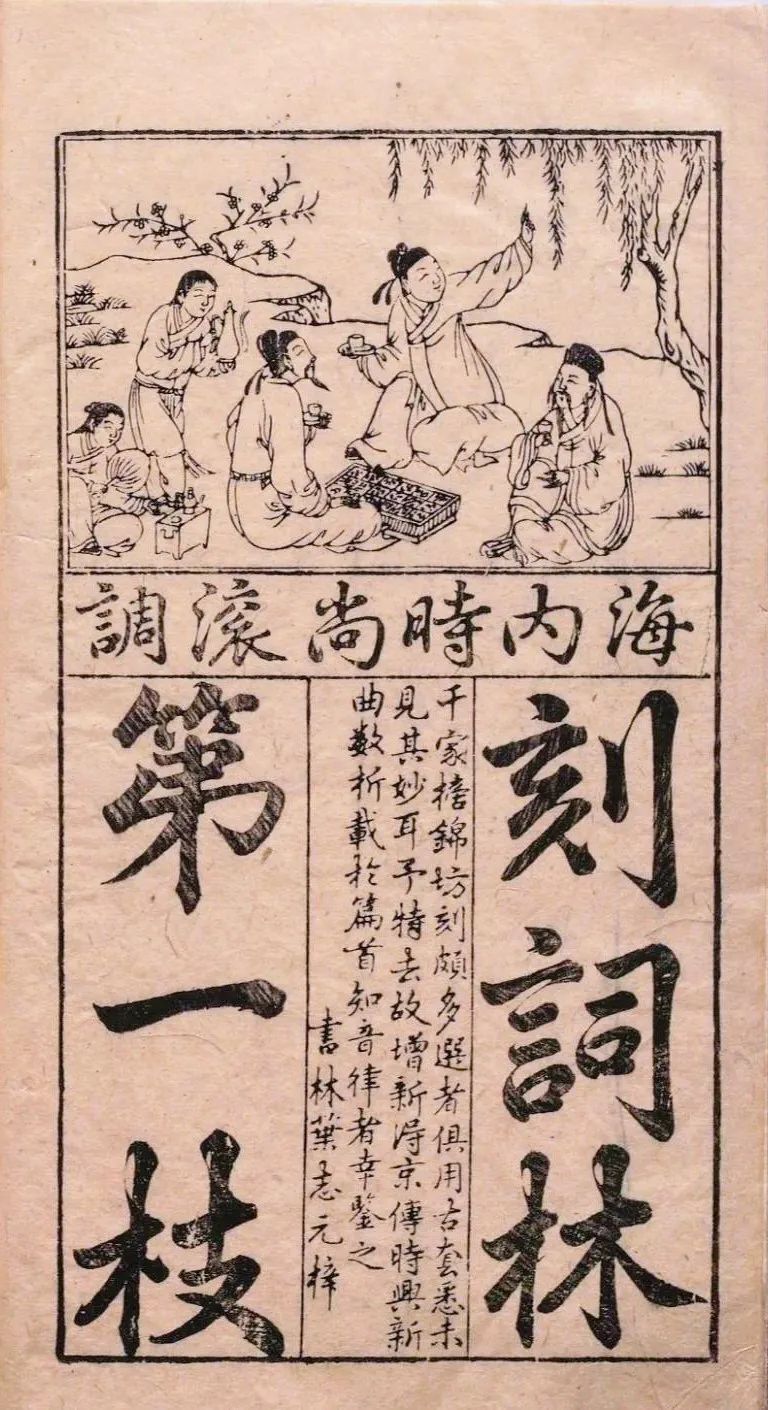 海內時尚滚調
刻詞林
千家摘錦坊刻頗多選者俱用古套悉未
見其妙耳予特去故增新得京傳時興新
曲數折載於篇首知音律者幸鑒之
書林葉志元梓
第一枝